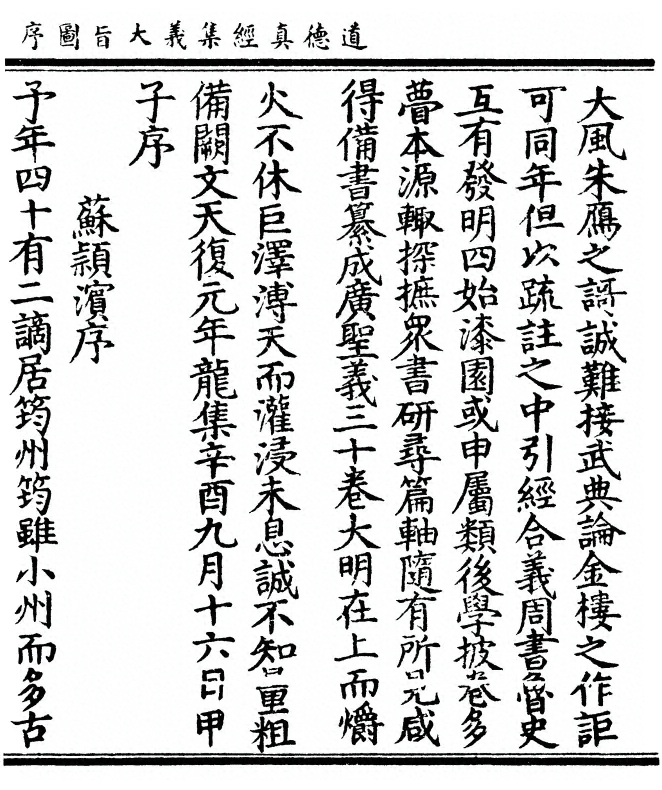 道德真經集義大旨圖序
大風朱鴈之謌誠難接武典論金樓之作詎
可同年但以疏註之中引經合義周書魯史
互有發明四始漆園或申屬類後學披卷多
瞢本源輙採摭衆書研尋篇軸隨有所見咸
得備書纂成廣聖義三十卷大明在上而爝
火不休巨澤溥天而灌浸未息誠不知量粗
備闕文天復元年龍集辛酉九月十六日甲
子序
蘇頴濱序
予年四十有二謫居筠州筠雖小州而多古